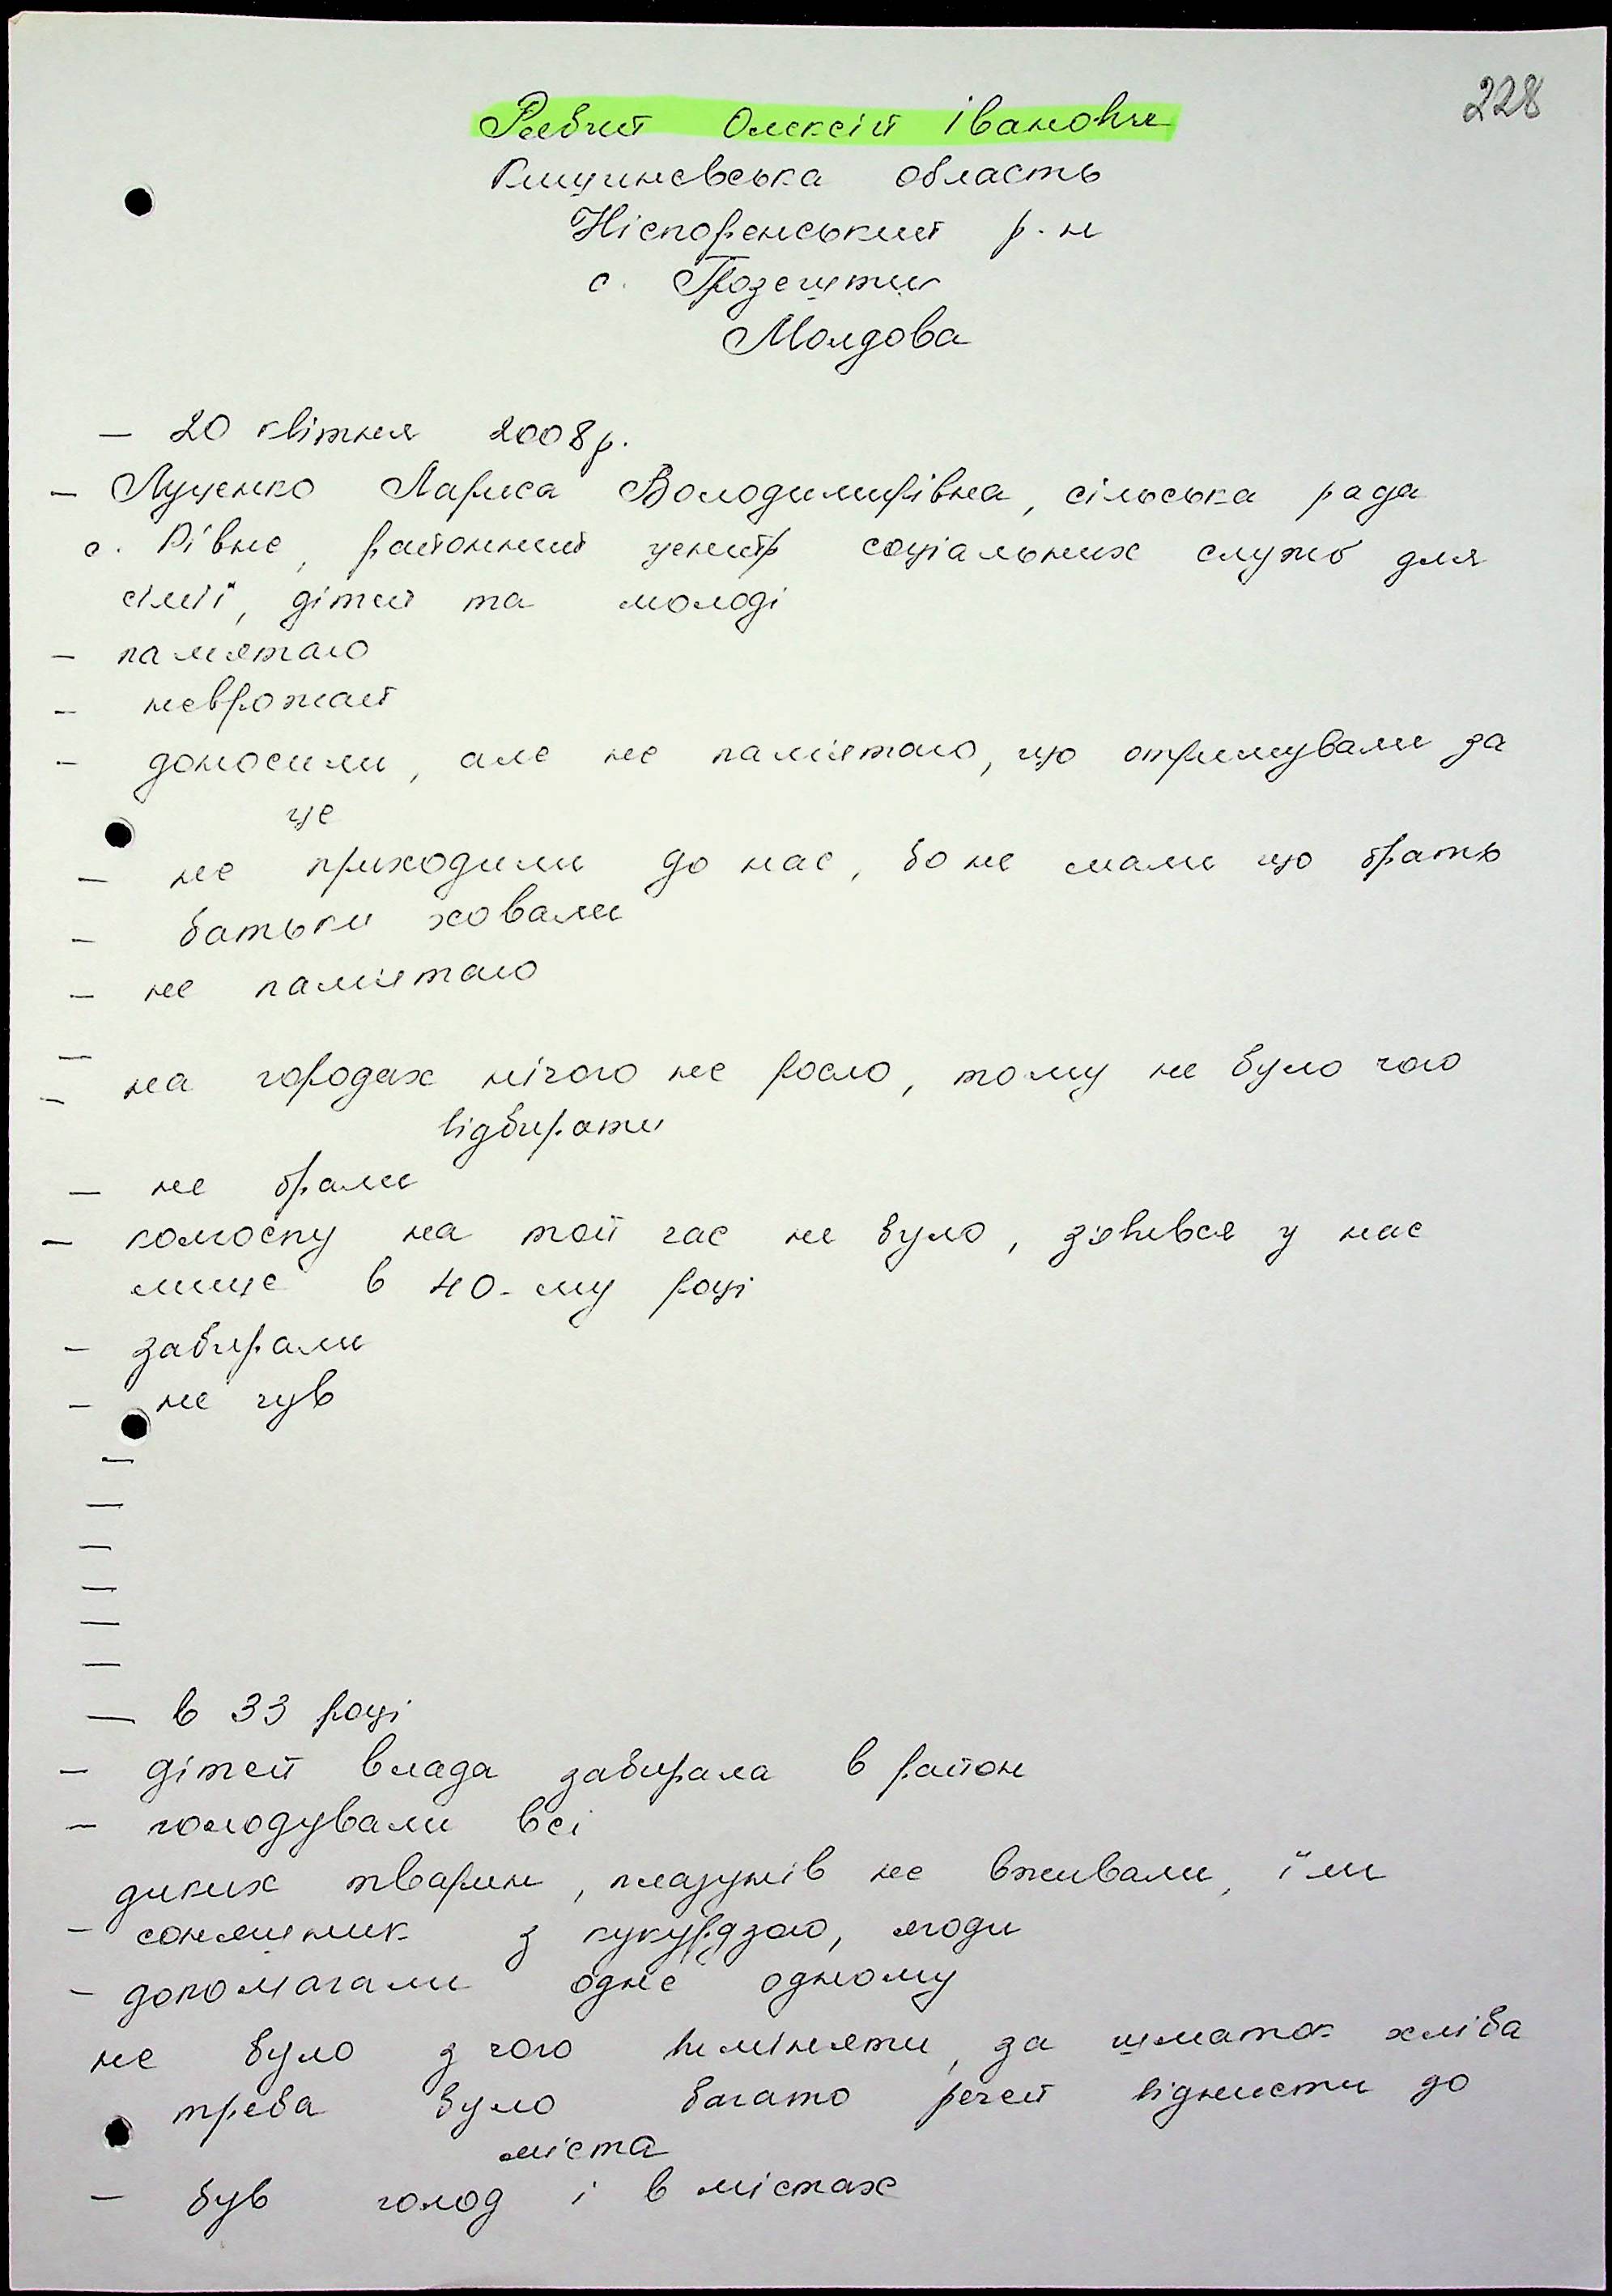 228
Рябчит Олексій Іванович
Кишиневська область
Ніспоренський р-н
с. Грозешти
Молдова
— 20 квітня 2008 р.
— Луценко Лариса Володимирівна, сільська рада
с. Рівне, районний центр соціальних служб для
сімїї, дітей та молоді
— памятаю
— неврожай
— доносили, але не памʼятаю, що отримували за
це
— не приходили до нас, бо не мали що брать
— батьки ховали
— не памʼятаю
—
— на городах нічого не росло, тому не було чого
відбирати
— не брали
— колгоспу на той час не було, зʼявився у нас
лише в 40-му році
— забирали
— не чув
—
—
—
—
—
—
— в 33 році
— дітей влада забирала в район
— голодували всі
диких тварин, плазунів не вживали, їли
— соняшник з кукурдзою, ягоди
— допомагали одне одному
не було з чого виміняти, за шматок хліба
треба було багато речей віднести до
міста
— був голод і в містах